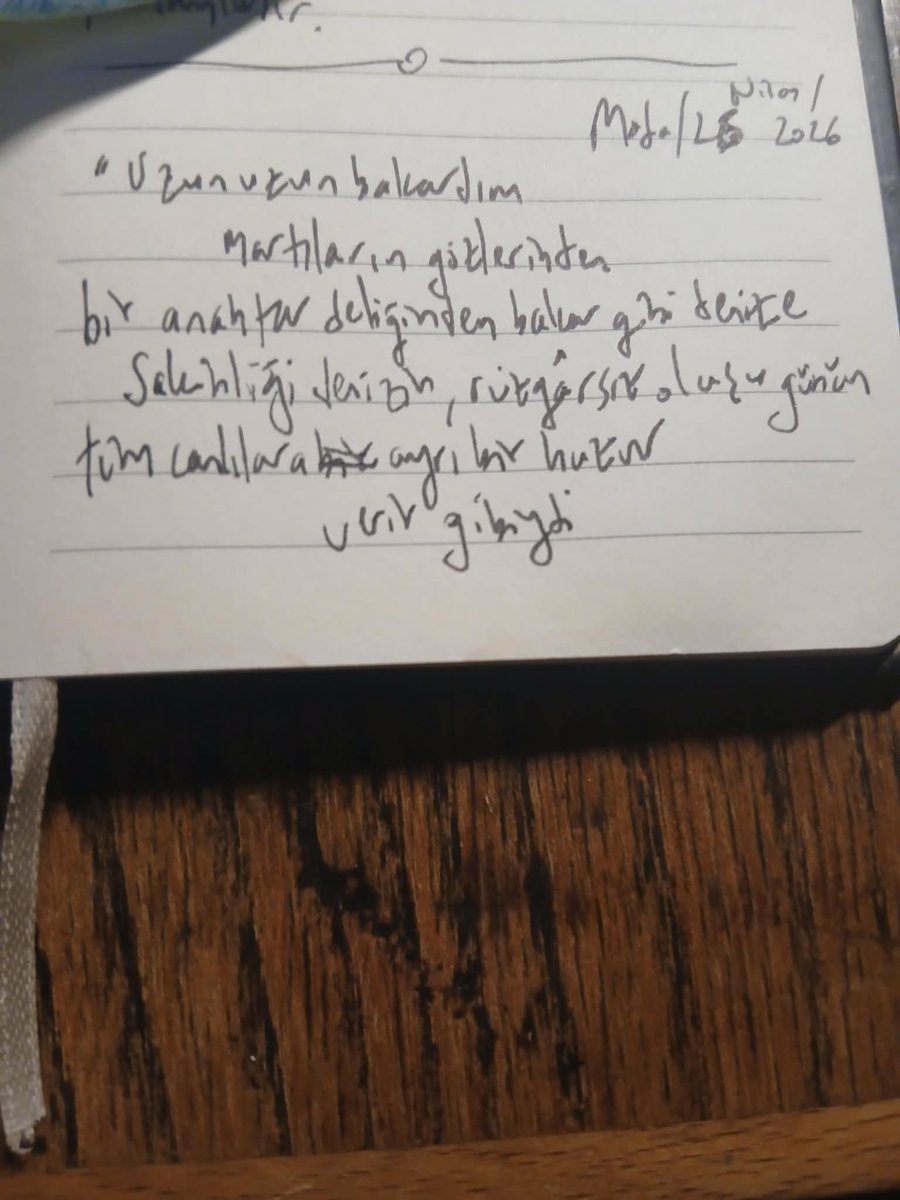 Nisan/
Moda/26 2026
"Uzun uzun bakardım
martıların gözlerinden
bir anahtar deliğinden bakar gibi denize
Sakinliği denizin, rüzgârsız oluşu günün
tüm canlılara ayrı bir huzur
verir gibiydi